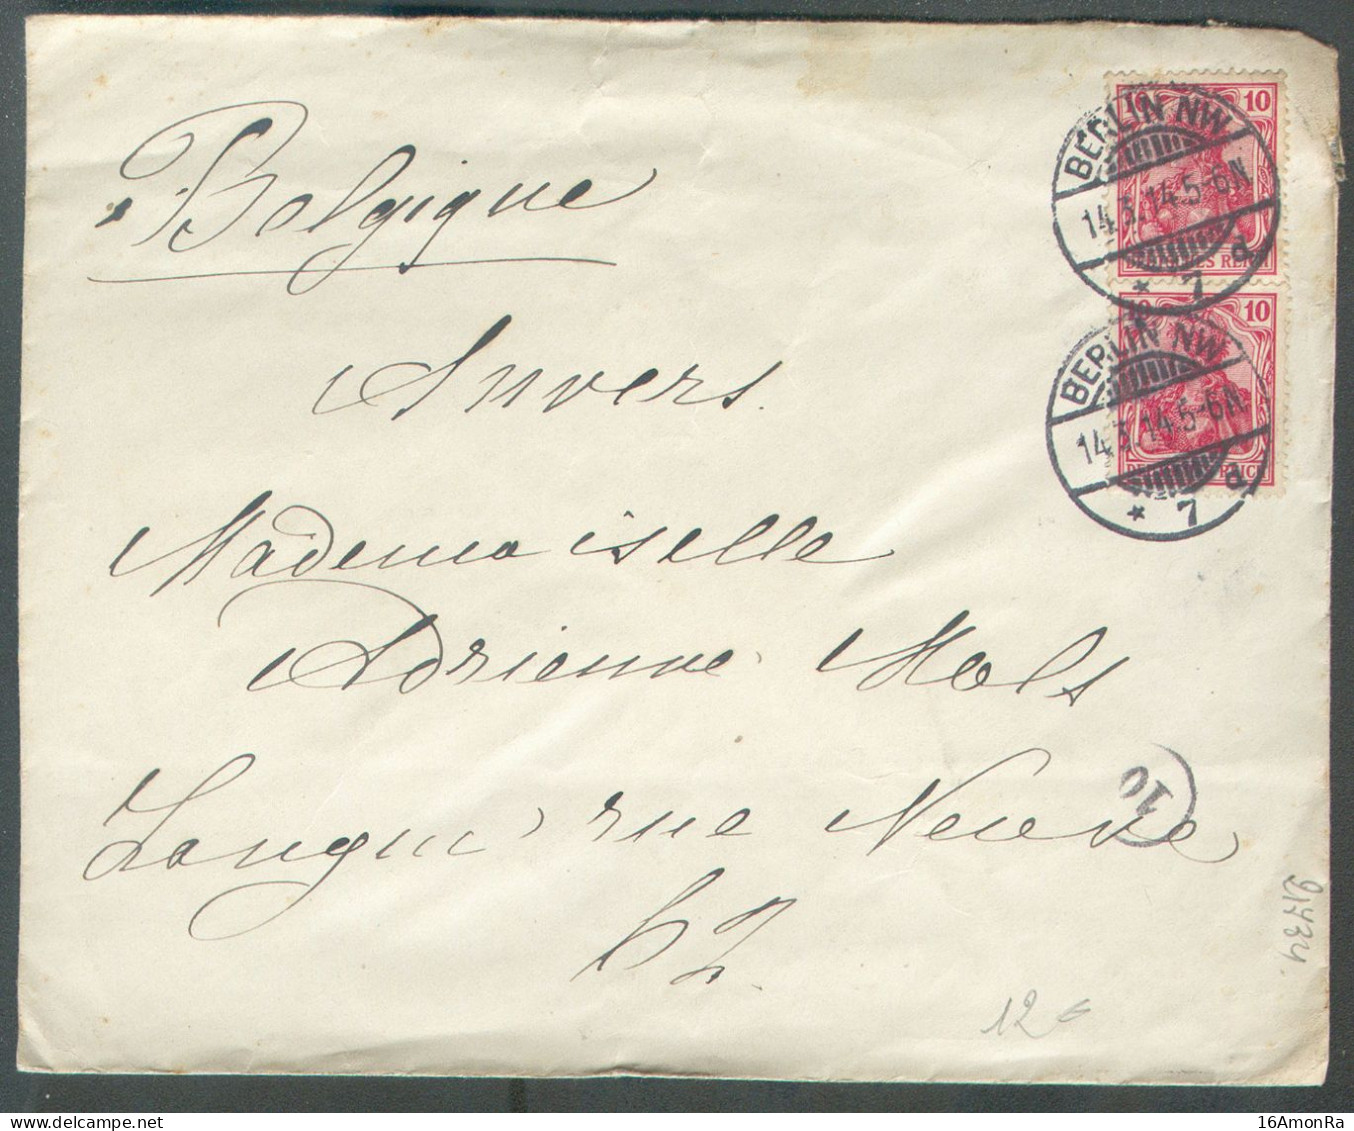 Belgique
Anvers.
Mademoiselle
Adrienne Mols
Longue rue Neuve
62.
10 10
DEUTSCHES REICH
BERLIN NW
14.3.14.5-6N
* 7 d
10 10
REICH
BERLIN NW
14.3.14.5-6N
* 7 d
10
12
delcampe.net
16AmonRa